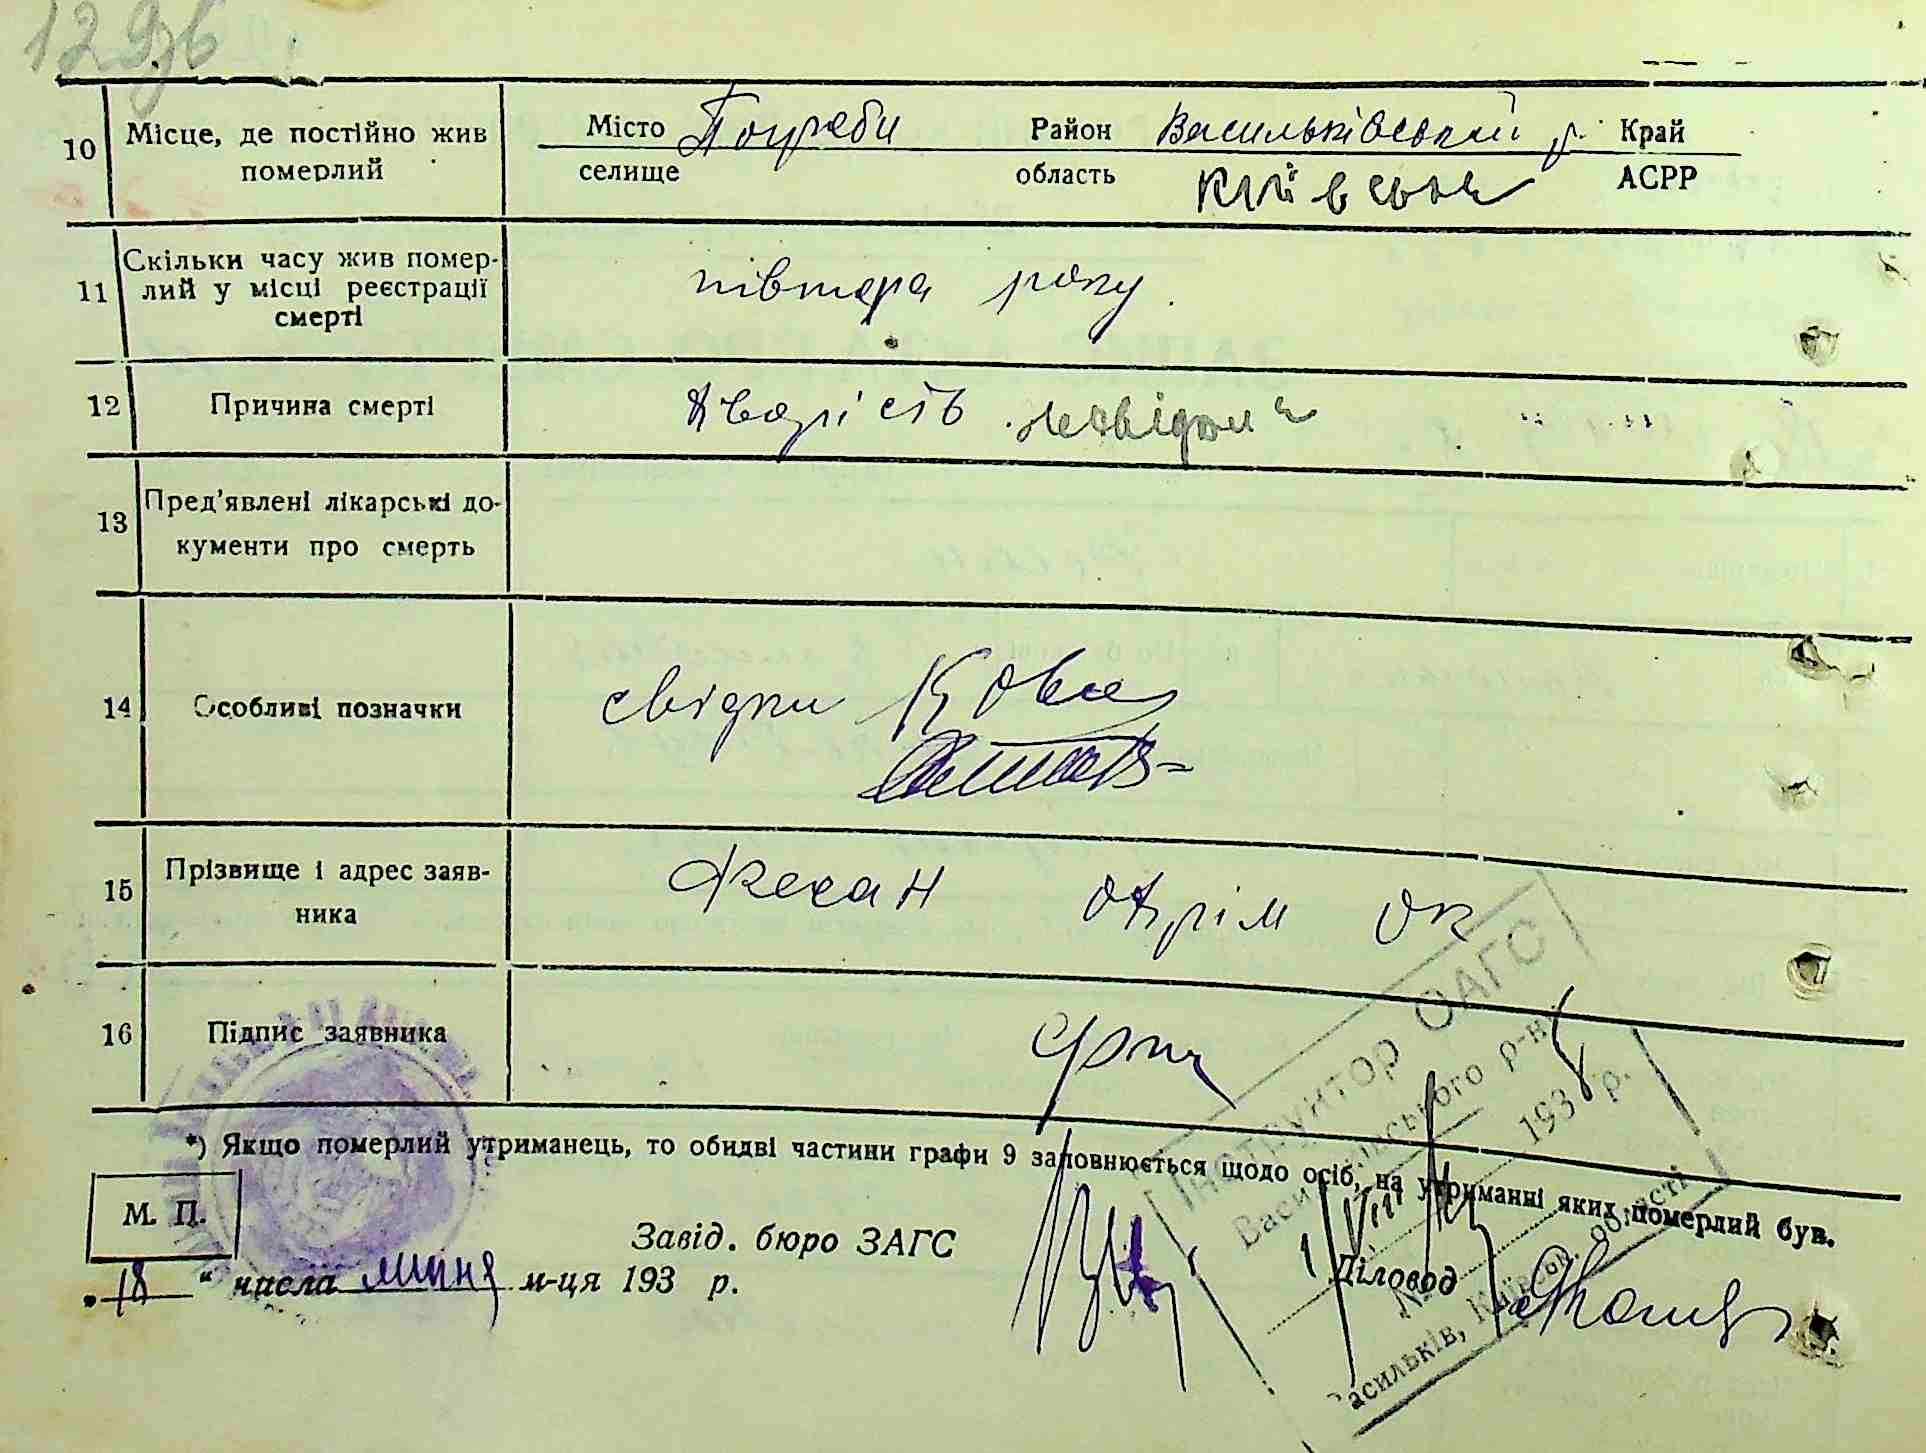 10 Місце, де постійно жив померлий
Місто селище Погреби Район область Васильківський р. Київська Край АСРР
11 Скільки часу жив помер-
лий у місці реєстрації
смерті
півтора року
12 Причина смерті хворість невідома
13 Пред'явлені лікарські до-
кументи про смерть
14 Особливі позначки свідки Кова
15 Прізвище і адрес заяв-
ника
16 Підпис заявника
*) Якщо померлий утриманець, то обидві частини графи 9 заповнюється щодо осіб, на утриманні яких померлий був.
М. П.
Завід. бюро ЗАГС
Діловод
„18" числа липня м-ця 193 р.
Інструктор ОАГС
Васильківського р-н
193 р.
№
Васильків, Київськ. області